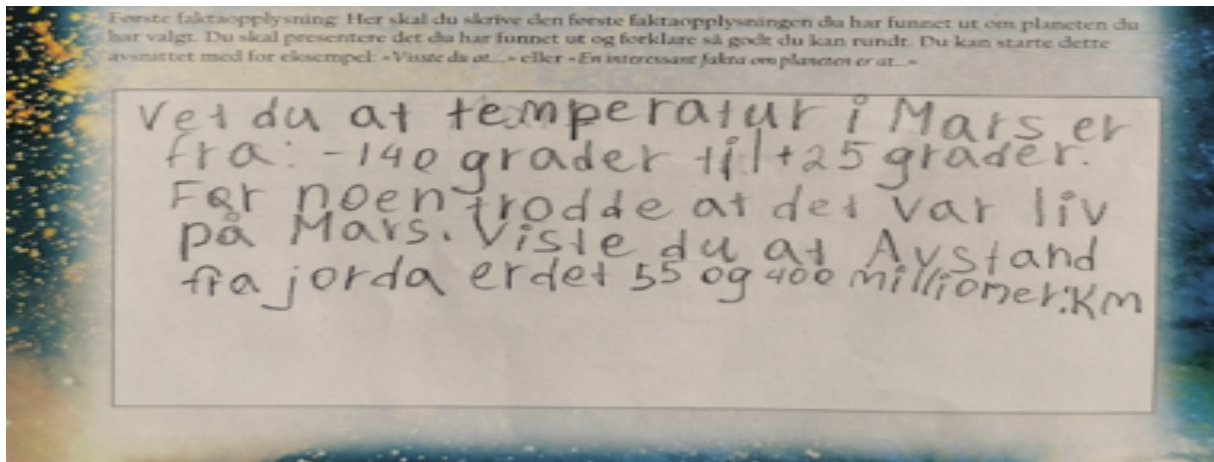 Første faktaopplysning: Her skal du skrive den første faktaopplysningen du har funnet ut om planeten du
har valgt. Du skal presentere det du har funnet ut og forklare så godt du kan rundt. Du kan starte dette
avsnittet med for eksempel: «Visste du at...» eller «En interessant fakta om planeten er at...»
Vet du at temperatur i Mars er
fra: -140 grader til +25 grader.
Før noen trodde at det var liv
på Mars. Viste du at Avstand
fra jorda er det 55 og 400 millioner: Km